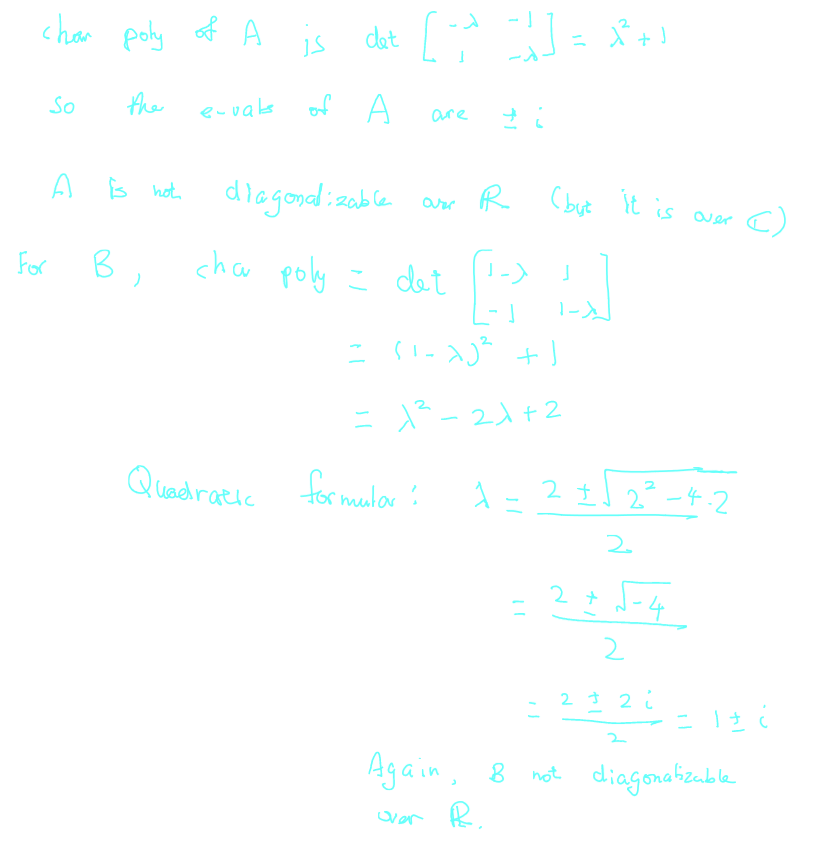 char poly of A is det [ -λ -1 ; 1 -λ ] = λ² + 1
so the e-vals of A are ± i
A is not diagonalizable over ℝ (but it is over ℂ)
For B, char poly = det [ 1-λ 1 ; -1 1-λ ]
= (1-λ)² + 1
= λ² - 2λ + 2
Quadratic formular: λ = (2 ± √(2² - 4·2)) / 2
= (2 ± √-4) / 2
= (2 ± 2i) / 2 = 1 ± i
Again, B not diagonalizable
over ℝ.